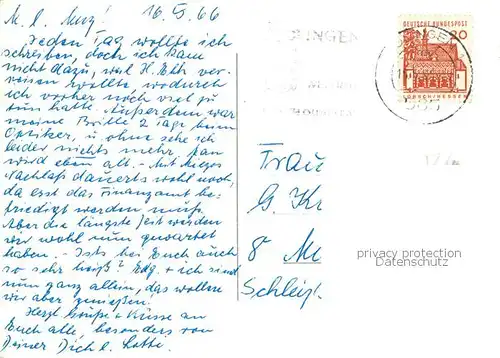 M. l. Muzg! 16.5.66
Jeden Tag wollte ich
schreiben, doch ich kam
nicht dazu, weil H. Ehk ver-
reisen wollte, wodurch
ich vorher noch viel zu
tun hatte. Außerdem war
meine Brille 2 Tage beim
Optiker, u. ohne sehe ich
leider nichts mehr. Man
wird eben alt. - Mit
Nachlaß dauerts wohl noch,
da erst das Finanzamt be-
friedigt werden muß.
Aber die längste Zeit werden
wir wohl nun gewartet
haben. - Ists bei Euch auch
so sehr heiß? Edg. + ich sind
nun ganz allein, das wollen
wir aber genießen!
Herzl. Grüße + Küsse an
Euch alle, besonders von
Deiner Dich l. Lotti.
DEUTSCHE BUNDESPOST
20
LORSCH/HESSEN
INGEN
Frau
G. Kr
8 M
Schleiß
privacy protection
Datenschutz